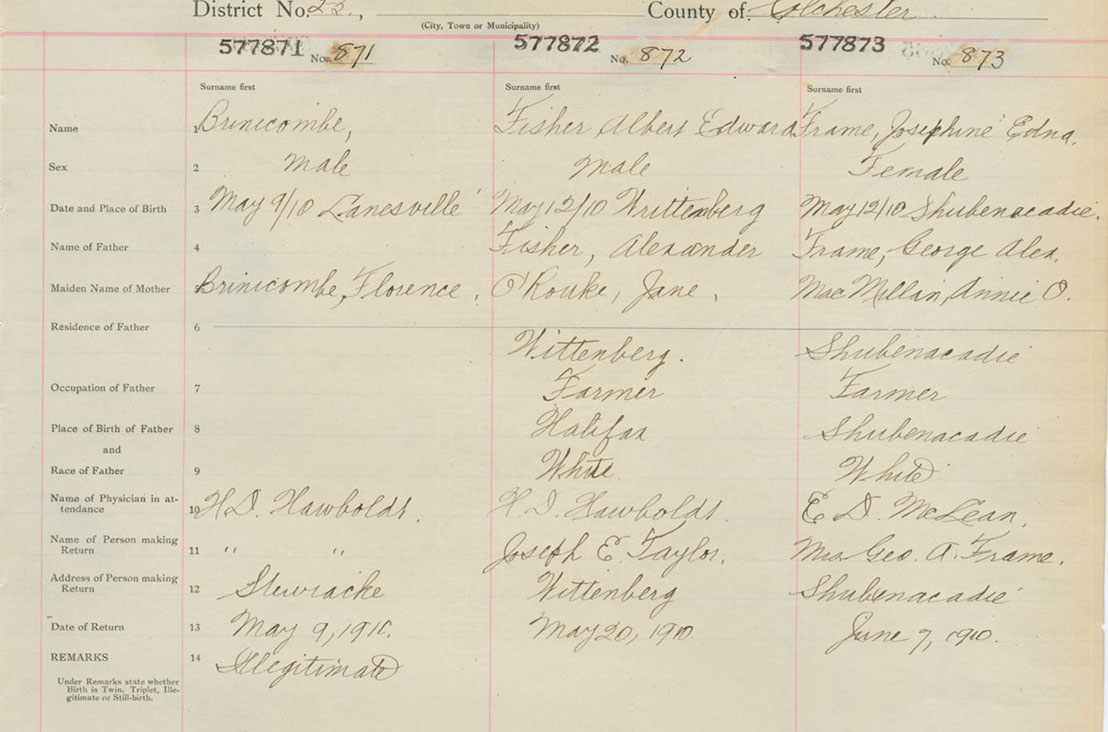 District No. 22., County of Colchester
(City, Town or Municipality)
577871 No. 871 577872 No. 872 577873 No. 873
Surname first Surname first Surname first
Name 1 Brinicombe, Fisher Albert Edward Frame, Josephine Edna.
Sex 2 Male Male Female
Date and Place of Birth 3 May 9/10 Lanesville May 12/10 Writtenberg May 12/10 Shubenacadie.
Name of Father 4 Fisher, Alexander Frame, George Alex.
Maiden Name of Mother Brinicombe, Florence, O'Rouke, Jane, MacMillan, Annie O.
Residence of Father 6
Wittenberg. Shubenacadie
Occupation of Father 7 Farmer Farmer
Place of Birth of Father 8 Halifax Shubenacadie
and
Race of Father 9 White White
Name of Physician in at-
tendance 10 H.D. Hawboldt. H.D. Hawboldt. E. D. McLean.
Name of Person making
Return 11 " " Joseph E. Taylor. Mrs Geo. A. Frame.
Address of Person making
Return 12 Stewiacke Wittenberg Shubenacadie
Date of Return 13 May 9, 1910. May 20, 1910. June 7, 1910.
REMARKS 14 Illegitimate
Under Remarks state whether
Birth is Twin, Triplet, Ille-
gitimate or Still-birth.